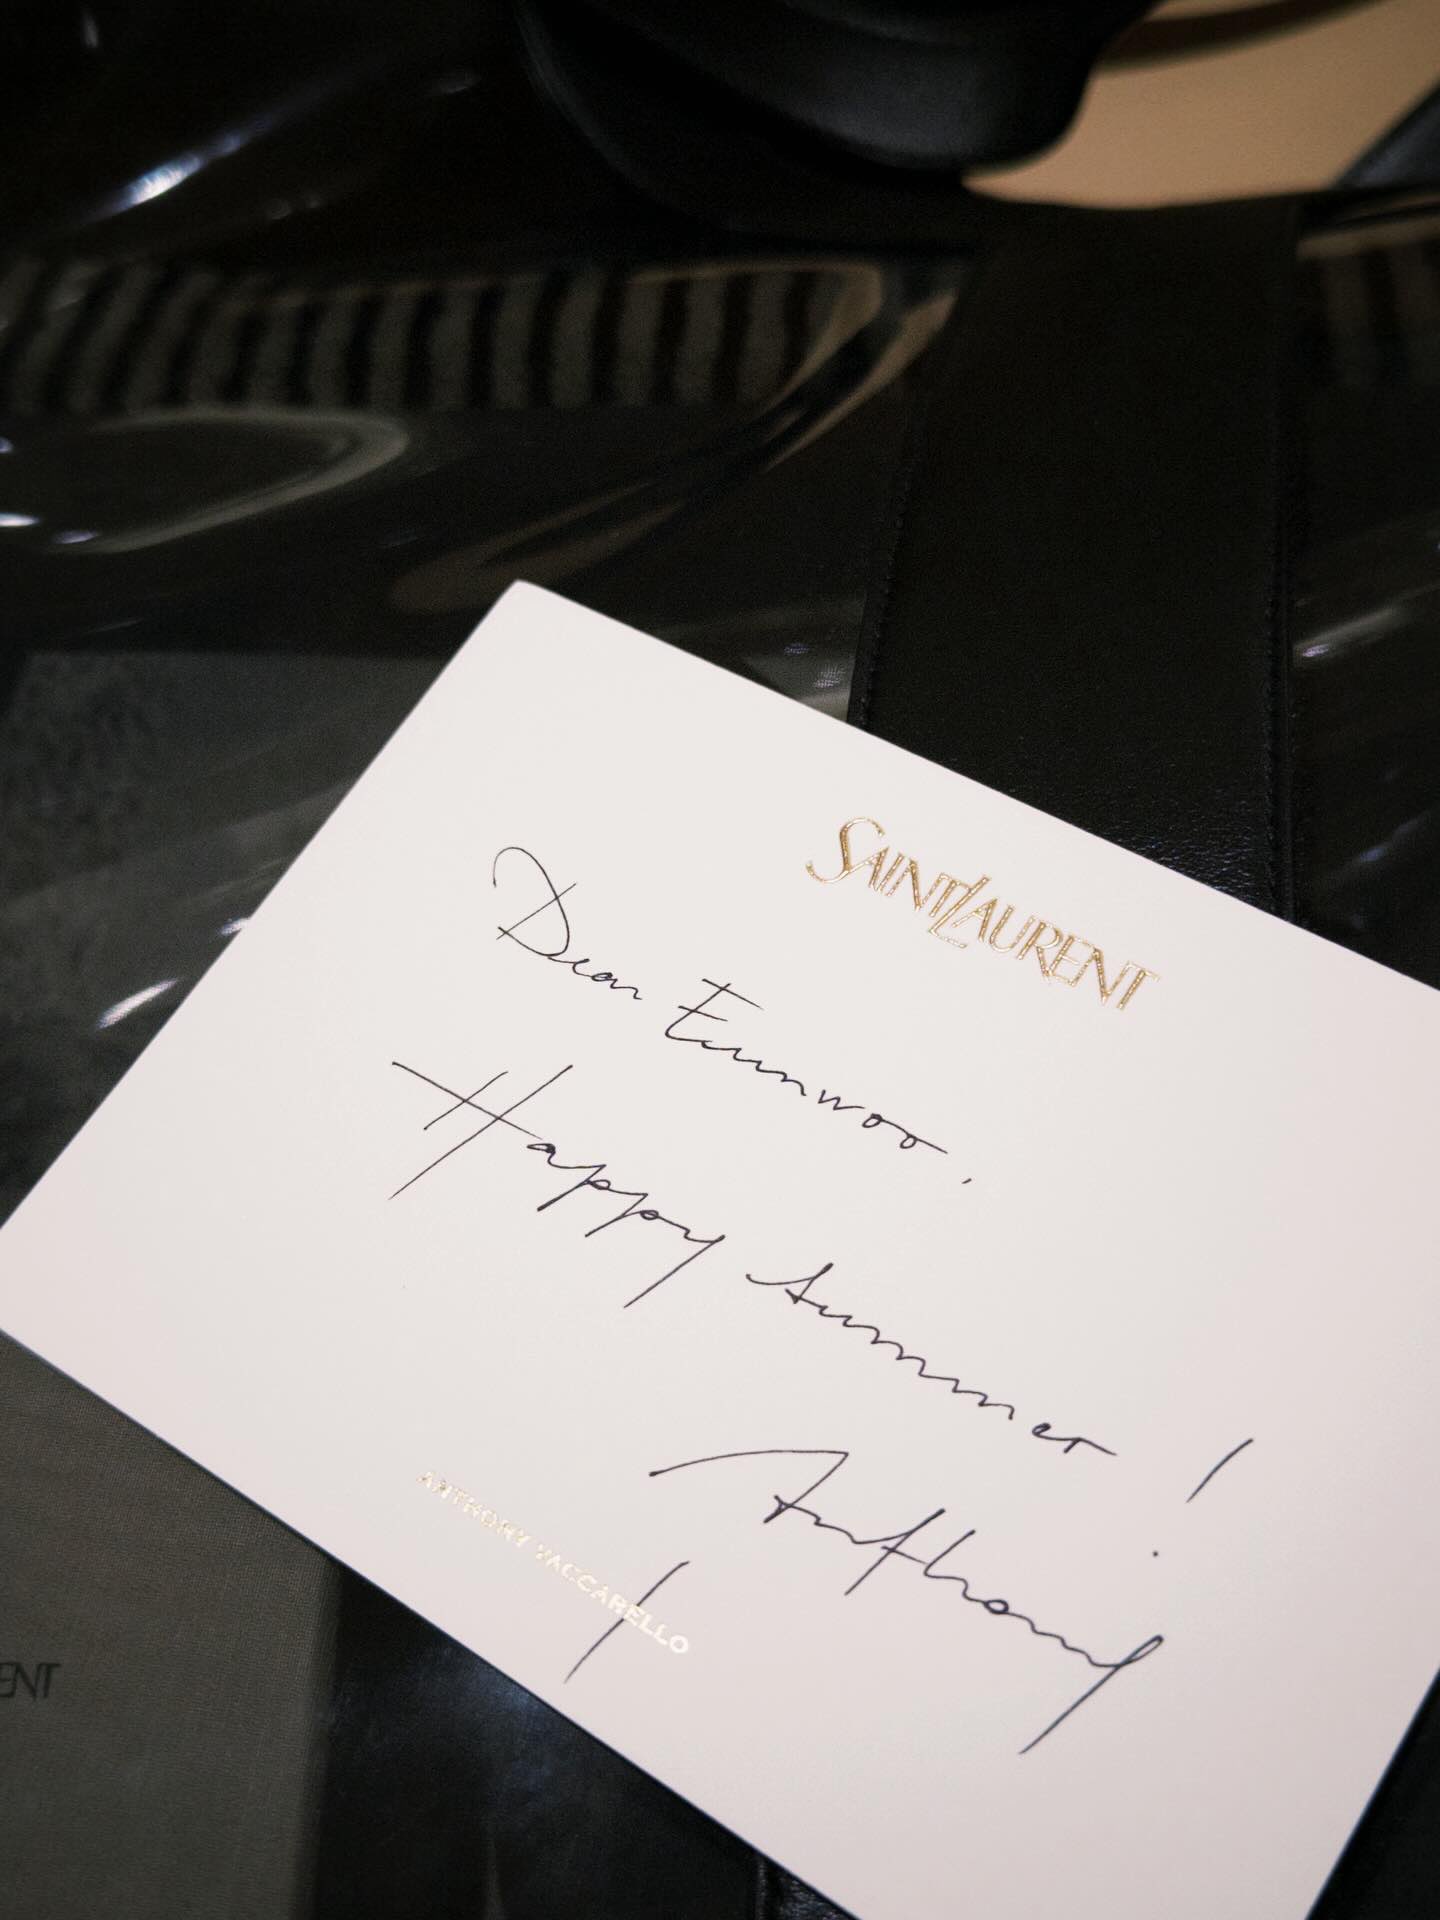 SAINT LAURENT
Dear Eunwoo,
Happy Summer!
Anthony
ANTHONY VACCARELLO
ENT